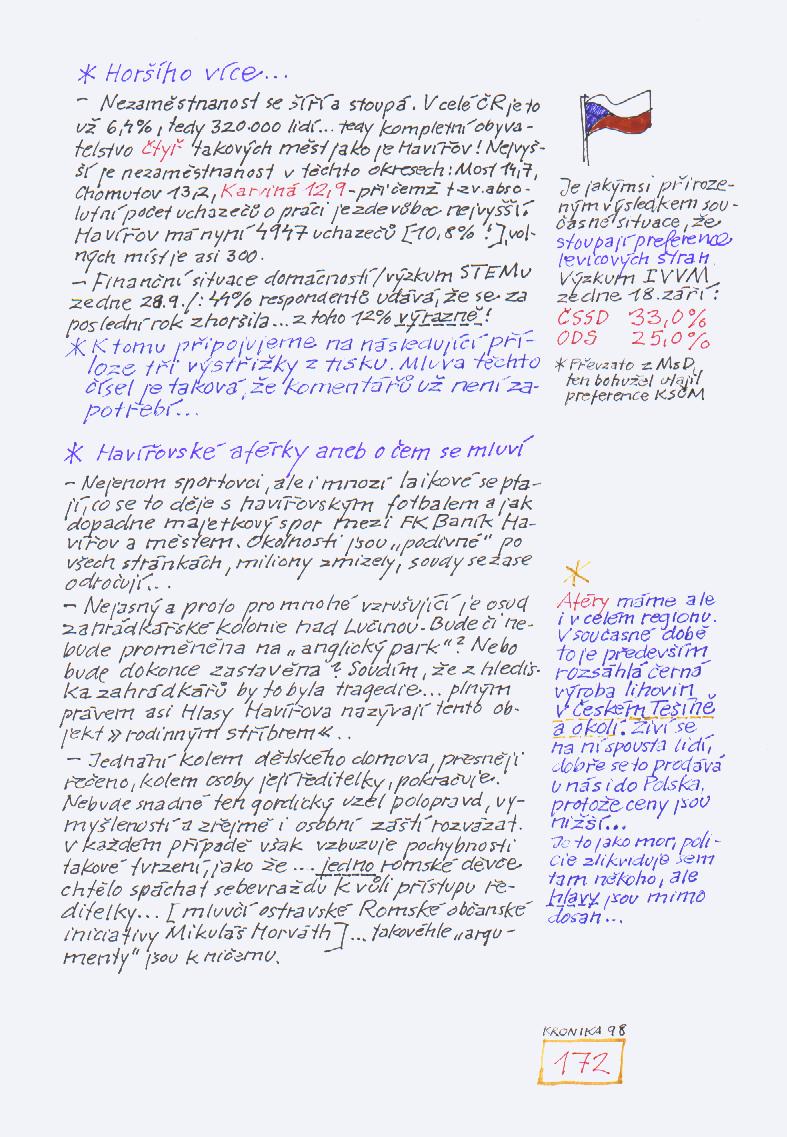 * Horšího více...
– Nezaměstnanost se šíří a stoupá. V celé ČR je to
už 6,4%, tedy 320.000 lidí... tedy kompletní obyva-
telstvo čtyř takových měst jako je Havířov! Nejvyš-
ší je nezaměstnanost v těchto okresech: Most 14,7,
Chomutov 13,2, Karviná 12,9 - přičemž t.zv. abso-
lutní počet uchazečů o práci je zde vůbec nejvyšší.
Havířov má nyní 4947 uchazečů [10,8% !], vol-
ných míst je asi 300.
– Finanční situace domácností /výzkum STEMu
ze dne 28.9./: 44% respondentů udává, že se za
poslední rok zhoršila... z toho 12% výrazně!
* K tomu připojujeme na následující pří-
loze tři výstřižky z tisku. Mluva těchto
čísel je taková, že komentářů už není za-
potřebí...
* Havířovské aférky aneb o čem se mluví
– Nejenom sportovci, ale i mnozí laikové se pta-
jí, co se to děje s havířovským fotbalem a jak
dopadne majetkový spor mezi FK Baník Ha-
vířov a městem. Okolnosti jsou „podivné" po
všech stránkách, miliony zmizely, soudy se zase
odročují...
– Nejasný a proto pro mnohé vzrušující je osud
zahrádkářské kolonie nad Lučinou. Bude či ne-
bude proměněna na „anglický park"? Nebo
bude dokonce zastavěna? Soudím, že z hledis-
ka zahrádkářů by to byla tragedie... plným
právem asi Hlasy Havířova nazývají tento ob-
jekt » rodinným stříbrem «...
– Jednání kolem dětského domova, přesněji
řečeno, kolem osoby její ředitelky, pokračuje.
Nebude snadné ten gordický uzel polopravd, vy-
myšleností a zřejmě i osobní zášti rozvázat.
V každém případě však vzbuzuje pochybnosti
takové tvrzení, jako že ... jedno romské děvče
chtělo spáchat sebevraždu kvůli přístupu ře-
ditelky... [ mluvčí ostravské Romské občanské
iniciativy Mikuláš Horváth ]... takovéhle „argu-
menty" jsou k ničemu.
Je jakýmsi přiroze-
ným výsledkem sou-
časné situace, že
stoupají preference
levicových stran.
Výzkum IVVM
ze dne 18. září:
ČSSD 33,0%
ODS 25,0%
* Převzato z MsD,
ten bohužel utajil
preference KSČM
*
Aféry máme ale
i v celém regionu.
V současné době
to je především
rozsáhlá černá
výroba lihovin
v Českém Těšíně
a okolí. Živí se
na ní spousta lidí,
dobře se to prodává
u nás i do Polska,
protože ceny jsou
nižší...
Je to jako mor, poli-
cie zlikviduje sem
tam někoho, ale
hlavy jsou mimo
dosah...
KRONIKA 98
172